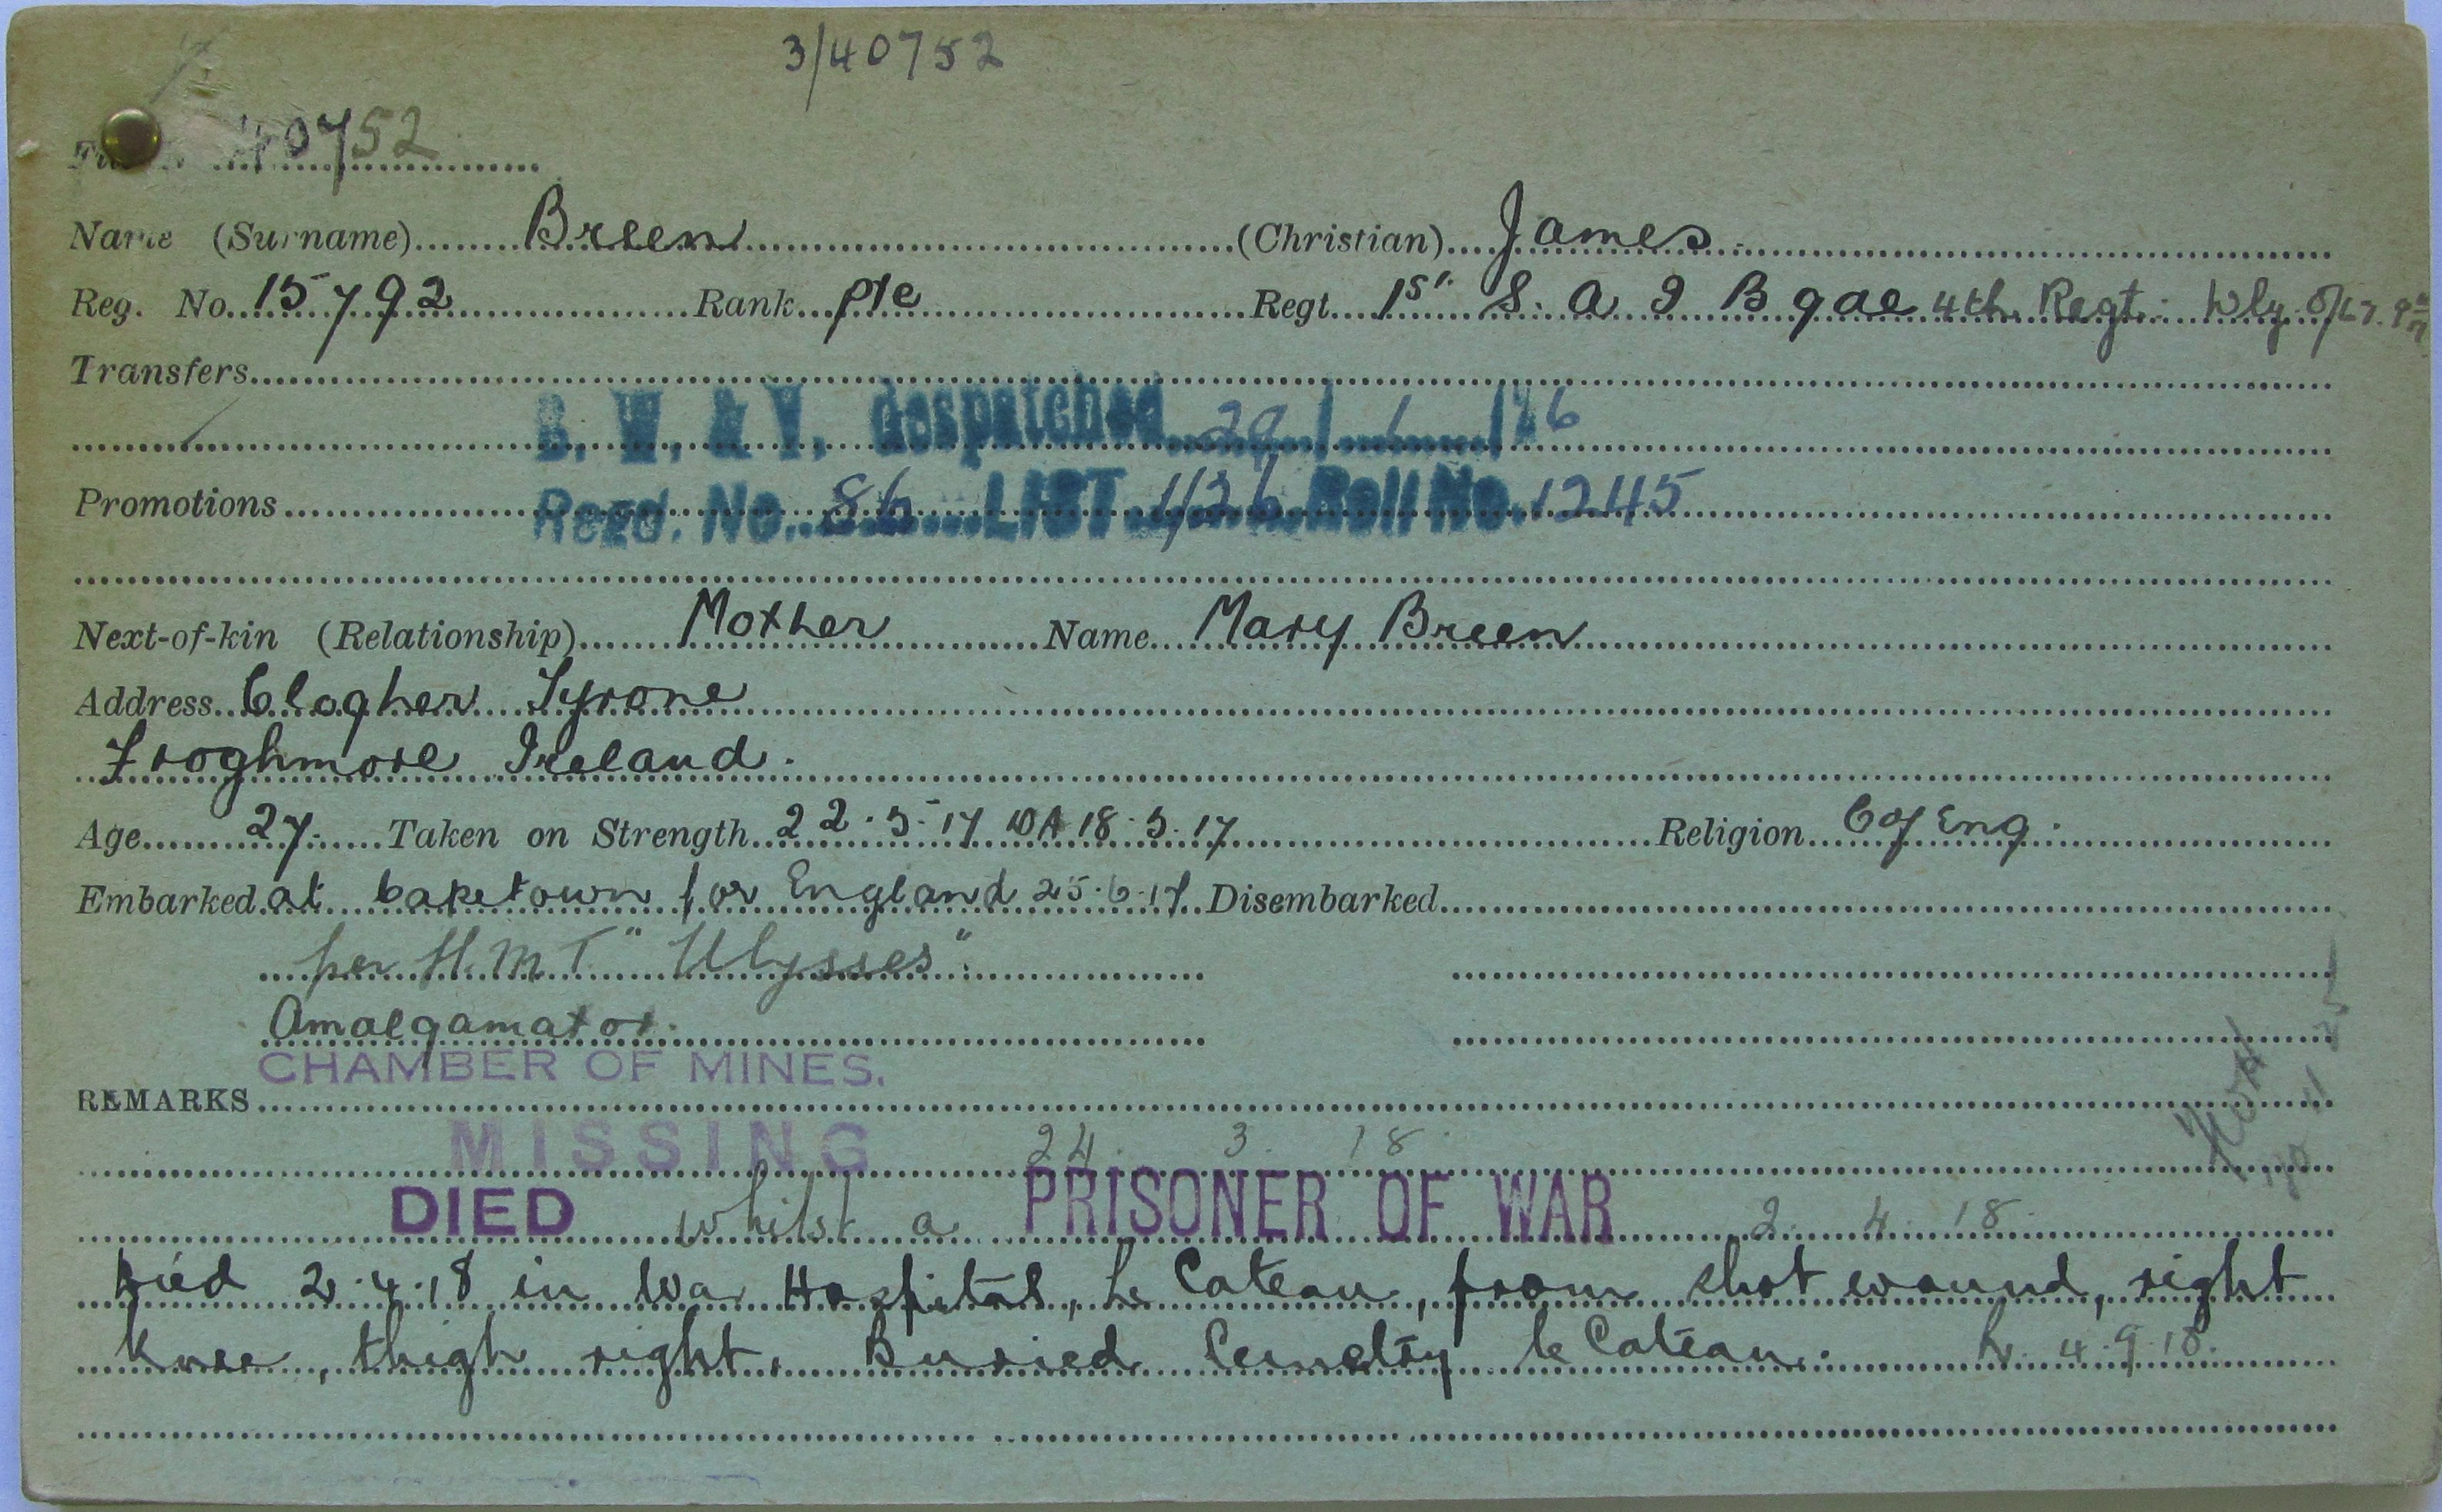 3/40752
40752
Name (Surname) Breen (Christian) James
Reg. No. 15792 Rank pte Regt. 1st S. A I Bgae 4th Regt.
Transfers
B. W. & V. despatched 29/1/26
Regd. No. 86 LIST 1/26 Roll No. 1245
Promotions
Next-of-kin (Relationship) Mother Name Mary Breen
Address Clogher Tyrone
Froghmore Ireland.
Age 27 Taken on Strength 22.5.17 18.5.17 Religion C of Eng.
Embarked at Capetown for England 25.6.17 Disembarked
per H.M.T "Ulysses"
Amalgamator.
CHAMBER OF MINES.
REMARKS
MISSING 24. 3. 18.
DIED whilst a PRISONER OF WAR 2. 4. 18.
Died 2.4.18 in War Hospital, Le Cateau, from shot wound, right
knee, thigh right. Buried Cemetry le Cateau. 4.9.18.